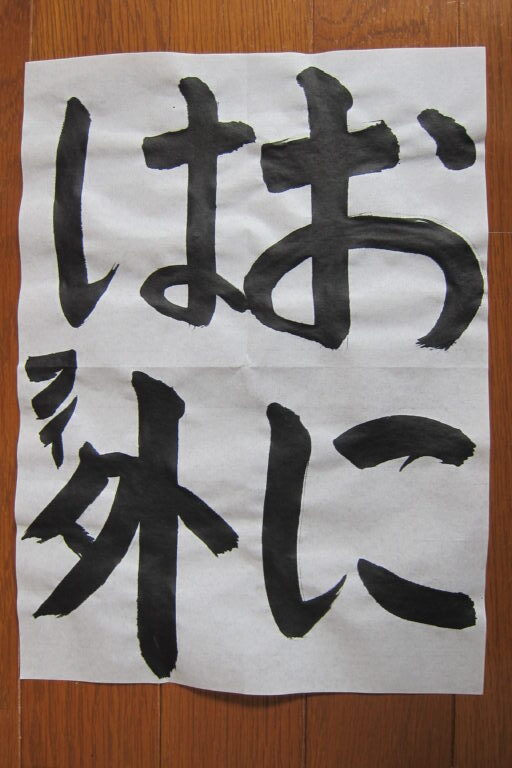 おに
は外